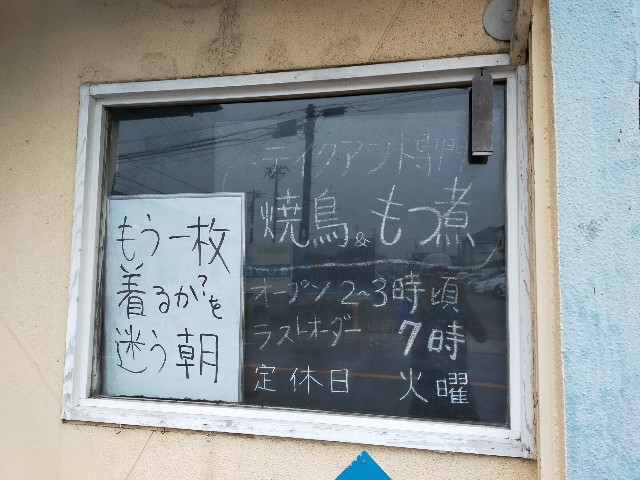 テイクアウト専門
焼鳥&もつ煮
オープン2~3時頃
ラストオーダー 7時
定休日 火曜
もう一枚
着るか?を
迷う朝